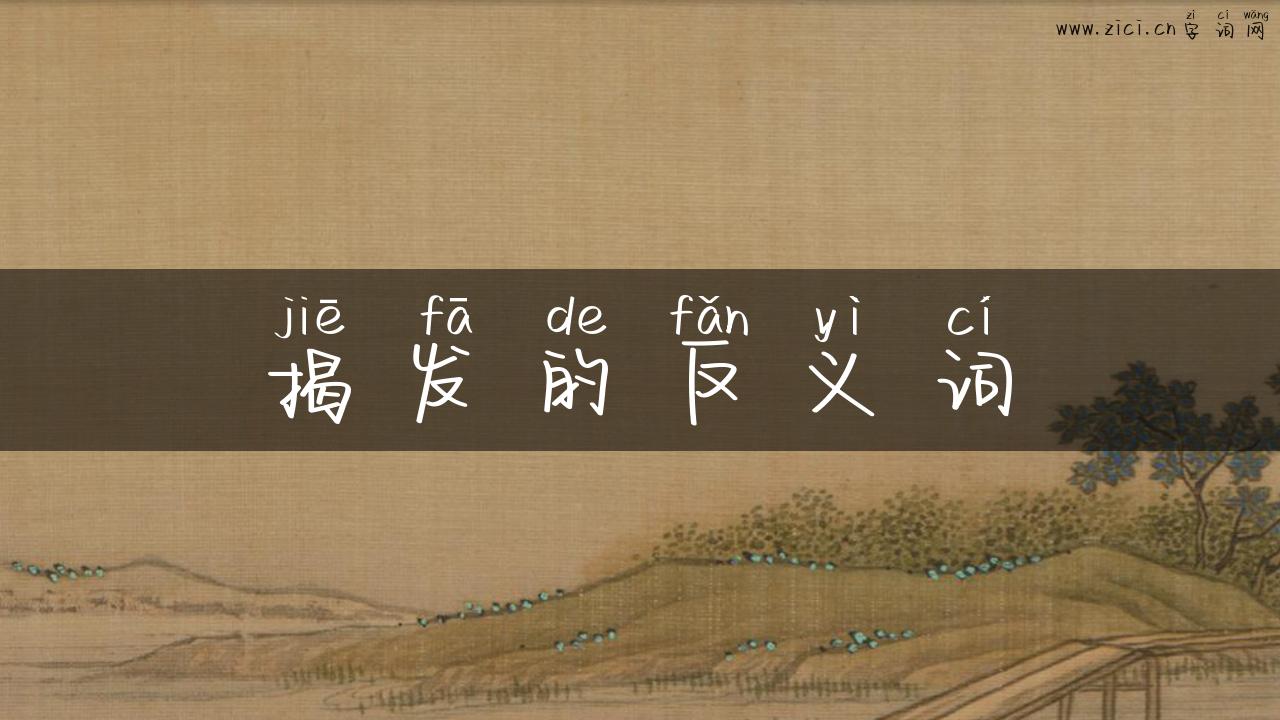 zì cí wǎng
www.zici.cn字词网
jiē fā de fǎn yì cí
揭发的反义词